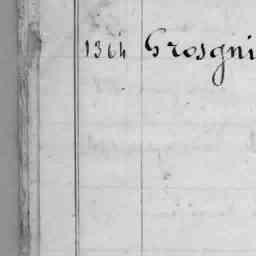 1364 Grosgni